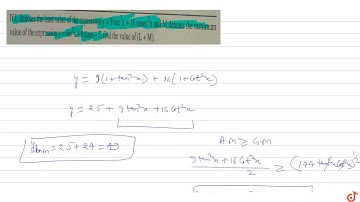 If L denotes the least value of the expression y = 9 sec²x + 16 cosec²x and M denotes the maximum
value of the expression y = the value of (L + M).
y = 9(1+tan²x) + 16(1+cot²x)
y = 25 + 9tan²x + 16cot²x
A.M ≥ G.M
ymin = 25 + 24 = 49
9tan²x + 16cot²x / 2 ≥ (144 tan²x cot²x)^1/2